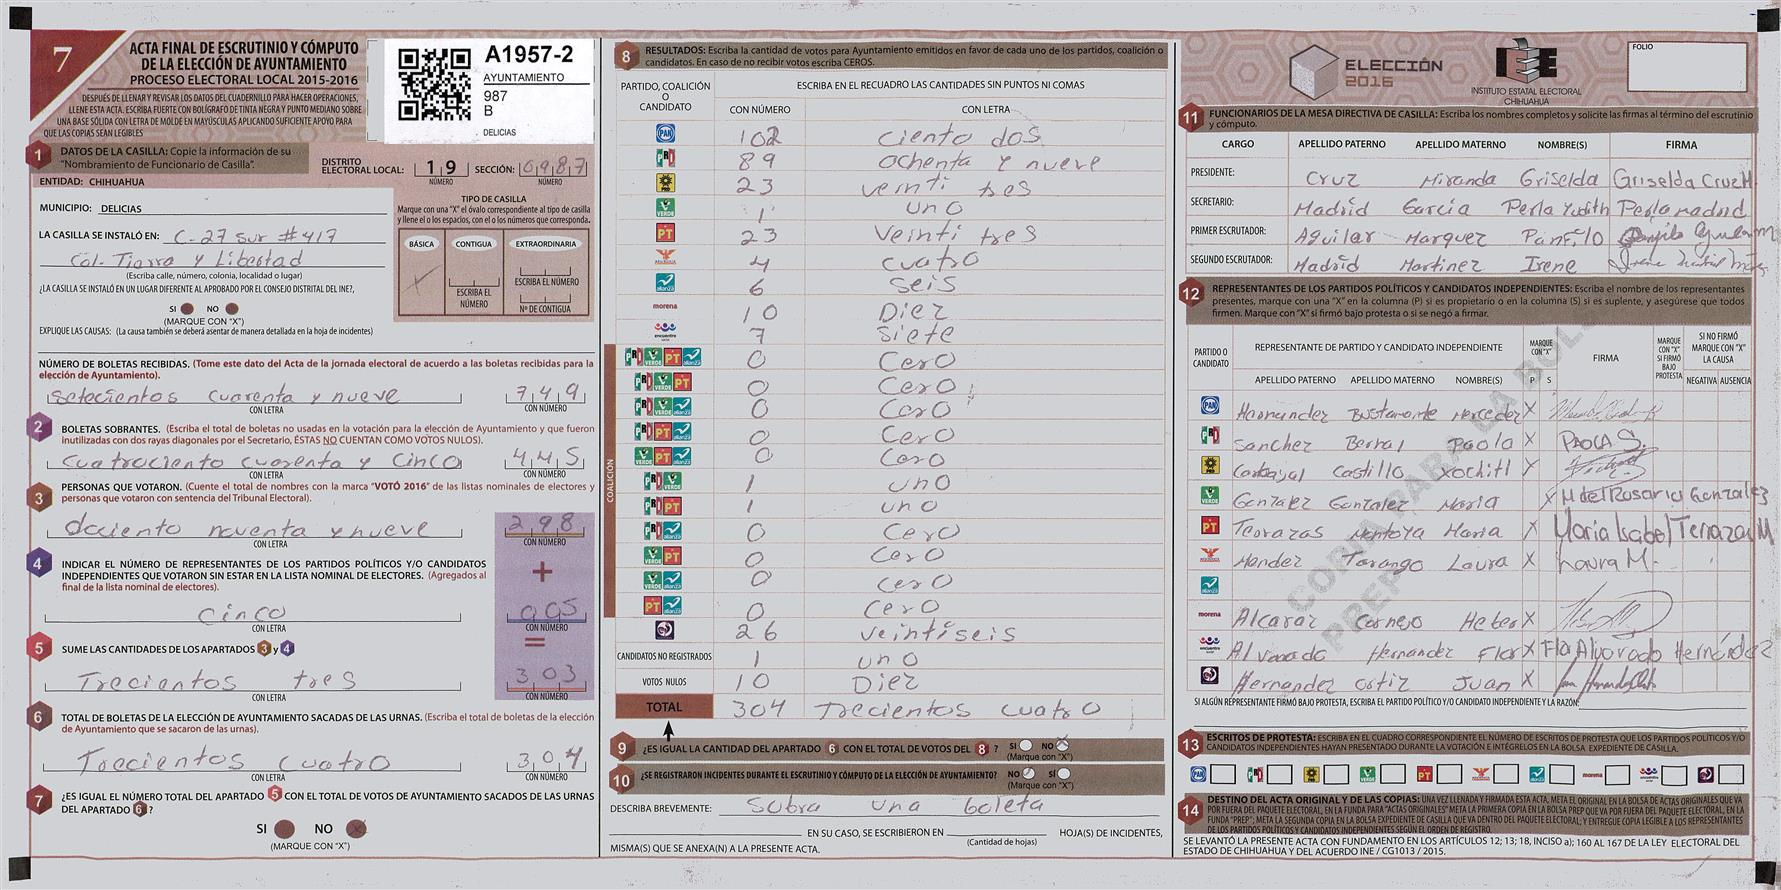 7
ACTA FINAL DE ESCRUTINIO Y CÓMPUTO
DE LA ELECCIÓN DE AYUNTAMIENTO
PROCESO ELECTORAL LOCAL 2015-2016
DESPUÉS DE LLENAR Y REVISAR LOS DATOS DEL CUADERNILLO PARA HACER OPERACIONES,
LLENE ESTA ACTA. ESCRIBA FUERTE CON BOLÍGRAFO DE TINTA NEGRA Y PUNTO MEDIANO SOBRE
UNA BASE SÓLIDA CON LETRA DE MOLDE EN MAYÚSCULAS APLICANDO SUFICIENTE APOYO PARA
QUE LAS COPIAS SEAN LEGIBLES
A1957-2
AYUNTAMIENTO
987
B
DELICIAS
1 DATOS DE LA CASILLA: Copie la información de su
"Nombramiento de Funcionario de Casilla".
DISTRITO ELECTORAL LOCAL: 19 NÚMERO SECCIÓN: 0987 NÚMERO
ENTIDAD: CHIHUAHUA
MUNICIPIO: DELICIAS
LA CASILLA SE INSTALÓ EN: C-27 sur #417
Col. Tierra y Libertad
(Escriba calle, número, colonia, localidad o lugar)
¿LA CASILLA SE INSTALÓ EN UN LUGAR DIFERENTE AL APROBADO POR EL CONSEJO DISTRITAL DEL INE?,
SI NO
(MARQUE CON "X")
EXPLIQUE LAS CAUSAS: (La causa también se deberá asentar de manera detallada en la hoja de incidentes)
TIPO DE CASILLA
Marque con una "X" el óvalo correspondiente al tipo de casilla
y llene el o los espacios, con el o los números que corresponda.
BÁSICA CONTIGUA EXTRAORDINARIA
X
ESCRIBA EL NÚMERO
ESCRIBA EL NÚMERO
Nº DE CONTIGUA
NÚMERO DE BOLETAS RECIBIDAS. (Tome este dato del Acta de la jornada electoral de acuerdo a las boletas recibidas para la
elección de Ayuntamiento).
setecientos cuarenta y nueve 749
CON LETRA CON NÚMERO
2 BOLETAS SOBRANTES. (Escriba el total de boletas no usadas en la votación para la elección de Ayuntamiento y que fueron
inutilizadas con dos rayas diagonales por el Secretario, ÉSTAS NO CUENTAN COMO VOTOS NULOS).
cuatrociento cuarenta y cinco 445
CON LETRA CON NÚMERO
3 PERSONAS QUE VOTARON. (Cuente el total de nombres con la marca "VOTÓ 2016" de las listas nominales de electores y
personas que votaron con sentencia del Tribunal Electoral).
dociento noventa y nueve 298
CON LETRA CON NÚMERO
4 INDICAR EL NÚMERO DE REPRESENTANTES DE LOS PARTIDOS POLÍTICOS Y/O CANDIDATOS
INDEPENDIENTES QUE VOTARON SIN ESTAR EN LA LISTA NOMINAL DE ELECTORES. (Agregados al
final de la lista nominal de electores).
+
cinco 005
CON LETRA CON NÚMERO
=
5 SUME LAS CANTIDADES DE LOS APARTADOS 3 y 4
Trecientos tres 303
CON LETRA CON NÚMERO
6 TOTAL DE BOLETAS DE LA ELECCIÓN DE AYUNTAMIENTO SACADAS DE LAS URNAS. (Escriba el total de boletas de la elección
de Ayuntamiento que se sacaron de las urnas).
Trecientos cuatro 304
CON LETRA CON NÚMERO
7 ¿ES IGUAL EL NÚMERO TOTAL DEL APARTADO 5 CON EL TOTAL DE VOTOS DE AYUNTAMIENTO SACADOS DE LAS URNAS
DEL APARTADO 6?
SI NO X
(MARQUE CON "X")
8 RESULTADOS: Escriba la cantidad de votos para Ayuntamiento emitidos en favor de cada uno de los partidos, coalición o
candidatos. En caso de no recibir votos escriba CEROS.
PARTIDO, COALICIÓN O CANDIDATO
ESCRIBA EN EL RECUADRO LAS CANTIDADES SIN PUNTOS NI COMAS
CON NÚMERO CON LETRA
PAN 102 ciento dos
PRI 89 ochenta y nueve
PRD 23 veinti tres
VERDE 1 uno
PT 23 veinti tres
4 cuatro
alianza 6 seis
morena 10 Diez
encuentro social 7 siete
COALICIÓN
PRI VERDE PT alianza 0 cero
PRI VERDE PT 0 cero
PRI VERDE alianza 0 cero
PRI PT alianza 0 cero
VERDE PT alianza 0 cero
PRI VERDE 1 uno
PRI PT 1 uno
PRI alianza 0 cero
VERDE PT 0 cero
VERDE alianza 0 cero
PT alianza 0 cero
26 veintiseis
CANDIDATOS NO REGISTRADOS 1 uno
VOTOS NULOS 10 Diez
TOTAL 304 Trecientos cuatro
9 ¿ES IGUAL LA CANTIDAD DEL APARTADO 6 CON EL TOTAL DE VOTOS DEL 8? SI NO X
(Marque con "X")
10 ¿SE REGISTRARON INCIDENTES DURANTE EL ESCRUTINIO Y CÓMPUTO DE LA ELECCIÓN DE AYUNTAMIENTO? NO SÍ
(Marque con "X")
DESCRIBA BREVEMENTE: Sobra una boleta
EN SU CASO, SE ESCRIBIERON EN HOJA(S) DE INCIDENTES,
(Cantidad de hojas)
MISMA(S) QUE SE ANEXA(N) A LA PRESENTE ACTA.
ELECCIÓN 2016
IEE
INSTITUTO ESTATAL ELECTORAL
CHIHUAHUA
FOLIO
11 FUNCIONARIOS DE LA MESA DIRECTIVA DE CASILLA: Escriba los nombres completos y solicite las firmas al término del escrutinio
y cómputo.
CARGO APELLIDO PATERNO APELLIDO MATERNO NOMBRE(S) FIRMA
PRESIDENTE: Cruz Miranda Griselda Griselda Cruz M
SECRETARIO: Madrid Garcia Perla Yudith Perla madrid
PRIMER ESCRUTADOR: Aguilar Marquez Panfilo
SEGUNDO ESCRUTADOR: Madrid Martinez Irene
12 REPRESENTANTES DE LOS PARTIDOS POLÍTICOS Y CANDIDATOS INDEPENDIENTES: Escriba el nombre de los representantes
presentes, marque con una "X" en la columna (P) si es propietario o en la columna (S) si es suplente, y asegúrese que todos
firmen. Marque con "X" si firmó bajo protesta o si se negó a firmar.
PARTIDO O CANDIDATO
REPRESENTANTE DE PARTIDO Y CANDIDATO INDEPENDIENTE
MARQUE CON "X"
FIRMA
MARQUE CON "X" SI FIRMÓ BAJO PROTESTA
SI NO FIRMÓ MARQUE CON "X" LA CAUSA
APELLIDO PATERNO APELLIDO MATERNO NOMBRE(S) P S NEGATIVA AUSENCIA
PAN Hernandez Bustamante Mercedes X
PRI Sanchez Bernal Paola X PAOLA S.
PRD Carbajal Castillo Xochitl X
VERDE Gonzalez Gonzalez Maria X M del Rosario Gonzalez
PT Terrazas Montoya Maria X Maria Isabel Terrazas M
Mendez Tarango Laura X Laura M.
alianza
morena Alcaraz Cornejo Heber X
encuentro social Alvarado Hernandez Flor X Flor Alvarado Hernández
Hernandez Ortiz Juan X
COPIA PARA LA BOLSA
PREP
SI ALGÚN REPRESENTANTE FIRMÓ BAJO PROTESTA, ESCRIBA EL PARTIDO POLÍTICO Y/O CANDIDATO INDEPENDIENTE Y LA RAZÓN:
13 ESCRITOS DE PROTESTA: ESCRIBA EN EL CUADRO CORRESPONDIENTE EL NÚMERO DE ESCRITOS DE PROTESTA QUE LOS PARTIDOS POLÍTICOS Y/O
CANDIDATOS INDEPENDIENTES HAYAN PRESENTADO DURANTE LA VOTACIÓN E INTÉGRELOS EN LA BOLSA EXPEDIENTE DE CASILLA.
PAN PRI PRD VERDE PT alianza morena
14 DESTINO DEL ACTA ORIGINAL Y DE LAS COPIAS: UNA VEZ LLENADA Y FIRMADA ESTA ACTA, META EL ORIGINAL EN LA BOLSA DE ACTAS ORIGINALES QUE VA
POR FUERA DEL PAQUETE ELECTORAL, EN LA FUNDA PARA "ACTAS ORIGINALES" META LA PRIMERA COPIA EN LA BOLSA PREP QUE VA POR FUERA DEL PAQUETE ELECTORAL, EN LA
FUNDA "PREP"; META LA SEGUNDA COPIA EN LA BOLSA EXPEDIENTE DE CASILLA QUE VA DENTRO DEL PAQUETE ELECTORAL; Y ENTREGUE COPIA LEGIBLE A LOS REPRESENTANTES
DE LOS PARTIDOS POLÍTICOS Y CANDIDATOS INDEPENDIENTES SEGÚN EL ORDEN DE REGISTRO.
SE LEVANTÓ LA PRESENTE ACTA CON FUNDAMENTO EN LOS ARTÍCULOS 12; 13; 18, INCISO a); 160 AL 167 DE LA LEY ELECTORAL DEL
ESTADO DE CHIHUAHUA Y DEL ACUERDO INE / CG1013 / 2015.